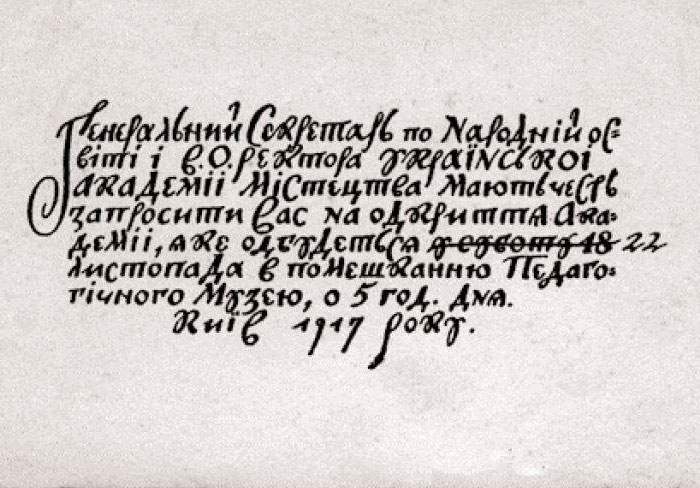 Генеральний Секретарь по Народній ос-
віті і в.О. ректора Української
Академії Містецтва мають честь
запросити Вас на одкриття Ака-
демії, яке одбудеться у суботу 18 22
листопада в помешканню Педаго-
гічного Музею, о 5 год. дня.
Київ 1917 року.